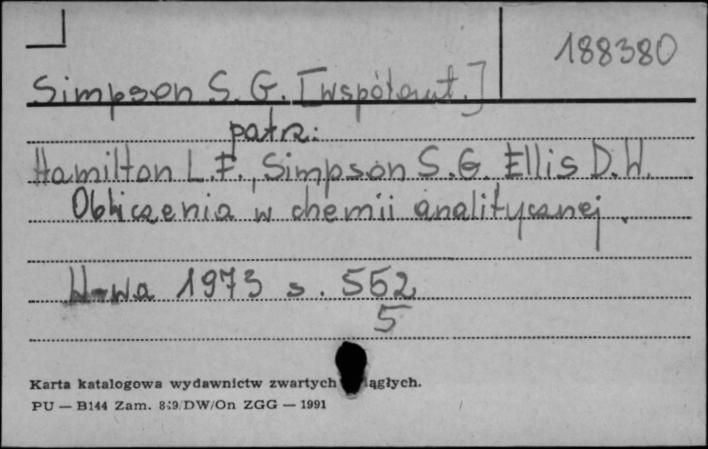 188380
Simpson S. G. [współaut.]
patrz:
Hamilton L.F., Simpson S.G. Ellis D.W.
Obliczenia w chemii analitycznej.
W-wa 1973 s. 552
5
Karta katalogowa wydawnictw zwartych ągłych.
PU — B144 Zam. 849/DW/On ZGG — 1991